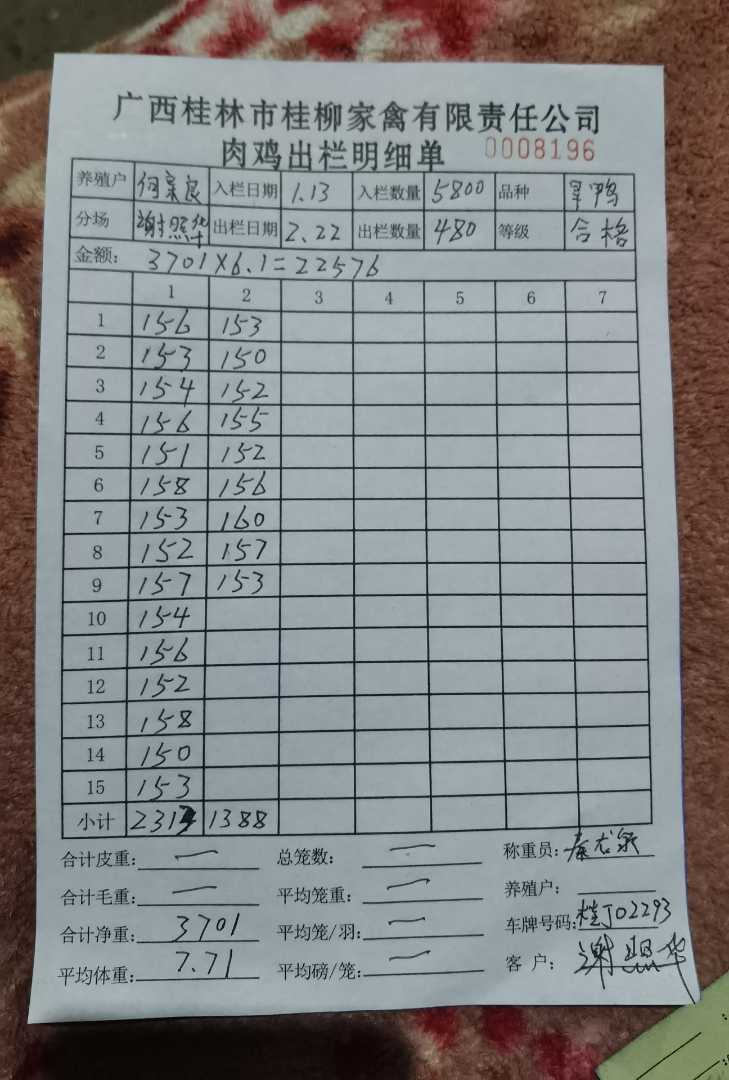 广西桂林市桂柳家禽有限责任公司
肉鸡出栏明细单 0008196
养殖户 何景良 入栏日期 1.13 入栏数量 5800 品种 旱鸭
分场 谢照华 出栏日期 2.22 出栏数量 480 等级 合格
金额: 3701×6.1=22576
1 2 3 4 5 6 7
1 156 153
2 153 150
3 154 152
4 156 155
5 151 152
6 158 156
7 153 160
8 152 157
9 157 153
10 154
11 156
12 152
13 158
14 150
15 153
小计 2313 1388
合计皮重: 一 总笼数: 一 称重员: 秦
合计毛重: 一 平均笼重: 一 养殖户:
合计净重: 3701 平均笼/羽: 一 车牌号码: 桂J02293
平均体重: 7.71 平均磅/笼: 一 客户: 谢照华